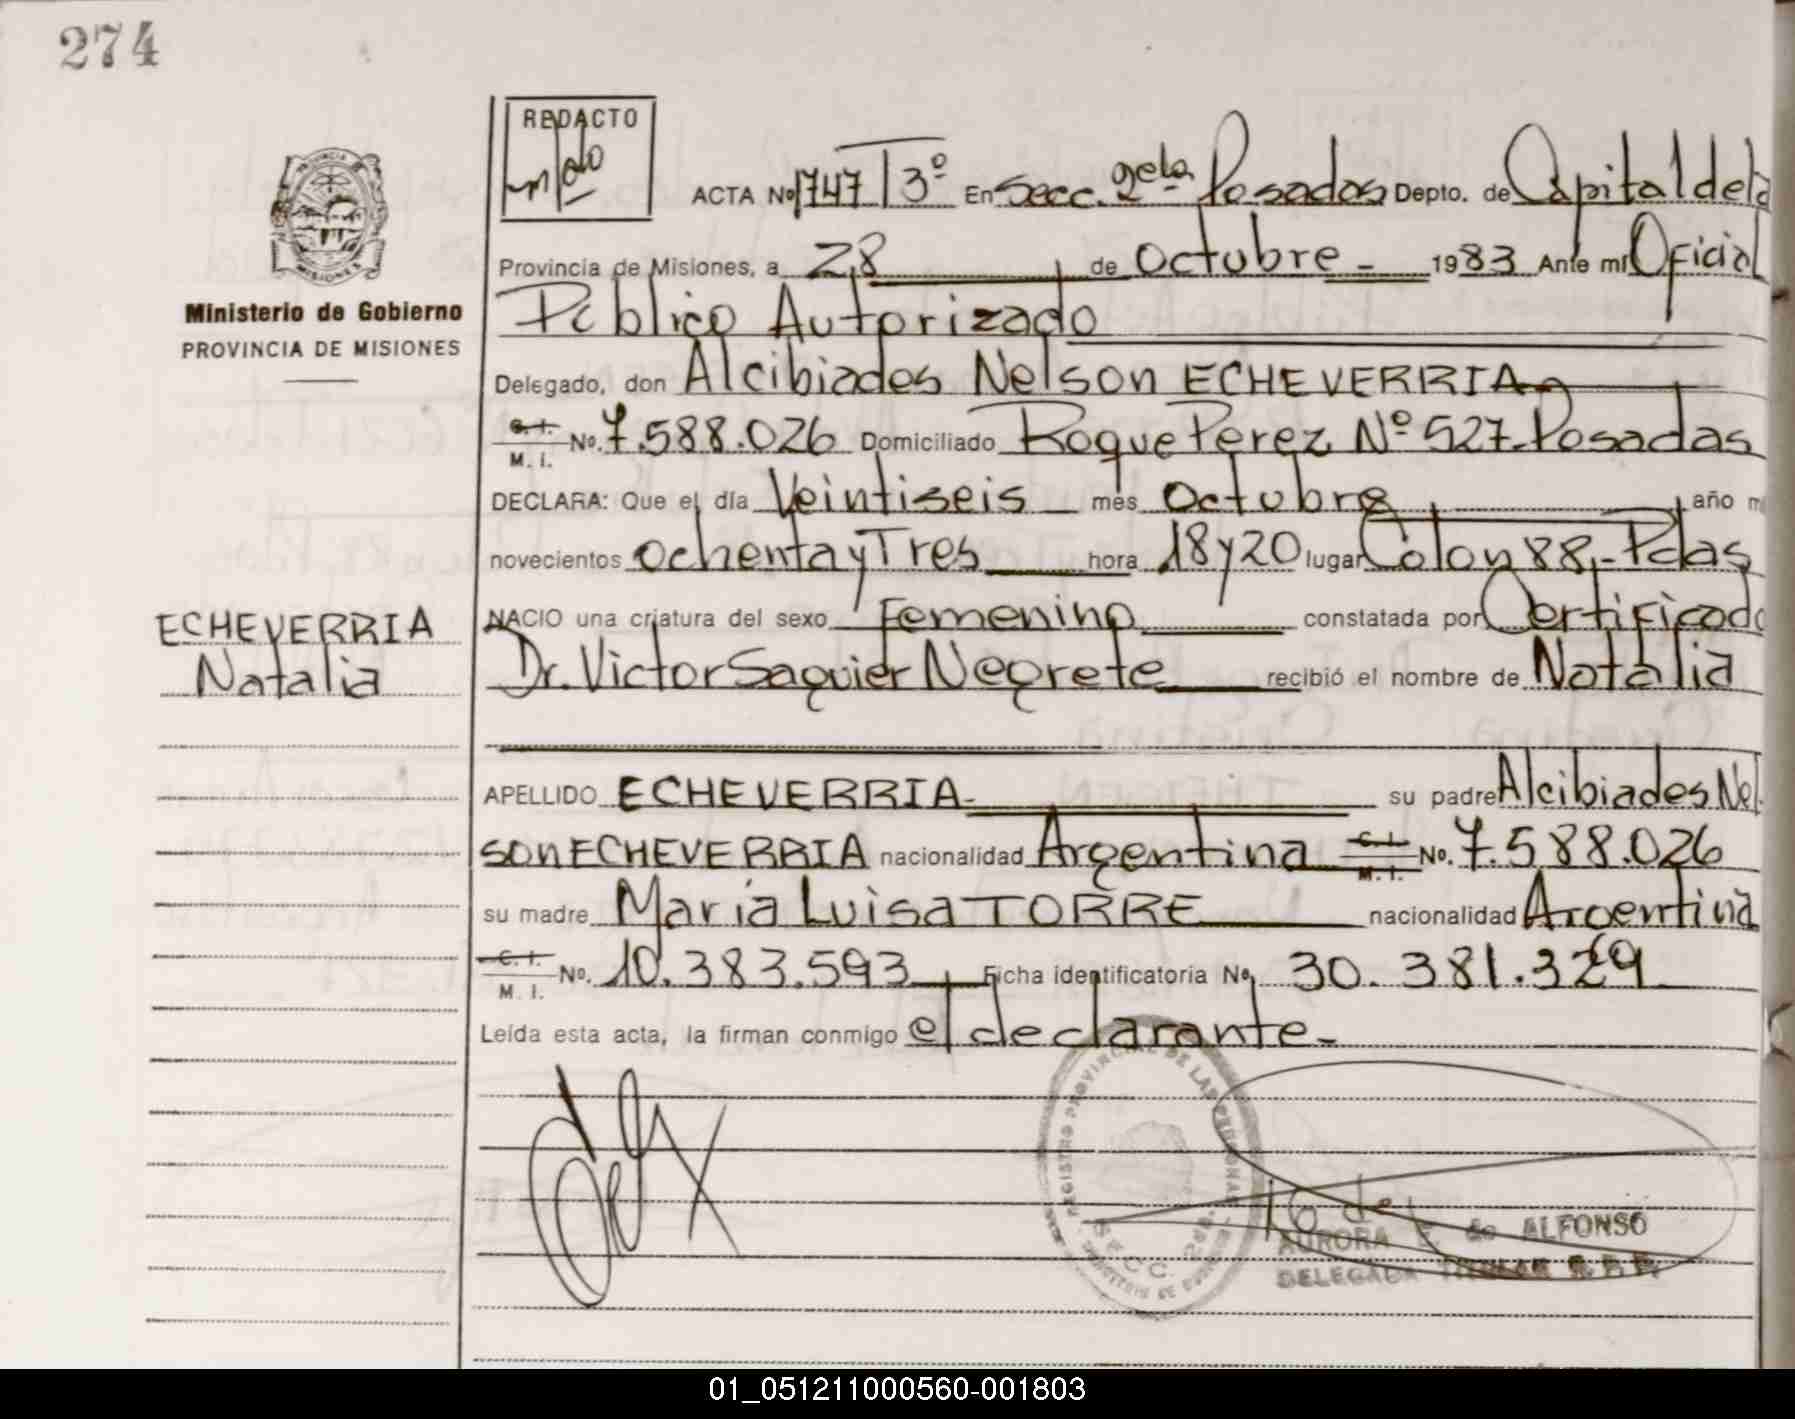 274
REDACTO
ACTA No 1747 T 3º En Secc. 2da Posadas Depto. de Capital de la
Provincia de Misiones, a 28 de Octubre - 1983 Ante mi Oficial
Ministerio de Gobierno
PROVINCIA DE MISIONES
Público Autorizado
Delegado, don Alcibiades Nelson ECHEVERRIA
C. I. M. I. No. 7.588.026 Domiciliado Roque Perez Nº 527-Posadas
DECLARA: Que el día Veintiseis mes Octubre año m
novecientos Ochenta y Tres hora 18 y 20 lugar Colon 88,- Pdas
NACIO una criatura del sexo Femenino constatada por Certificado
ECHEVERRIA
Natalia
Dr. Victor Saguier Negrete recibió el nombre de Natalia
APELLIDO ECHEVERRIA- su padre Alcibiades Nel
son ECHEVERRIA nacionalidad Argentina C. I. M. I. No. 7.588.026
su madre María Luisa TORRE nacionalidad Argentina
C. I. M. I. No. 10.383.593 Ficha identificatoria No. 30.381.329
Leída esta acta, la firman conmigo el declarante.-
REGISTRO PROVINCIAL DE LAS PERSONAS
SECC. 2da
AURORA E. de ALFONSO
DELEGADA TITULAR R. P. P.
01_051211000560-001803